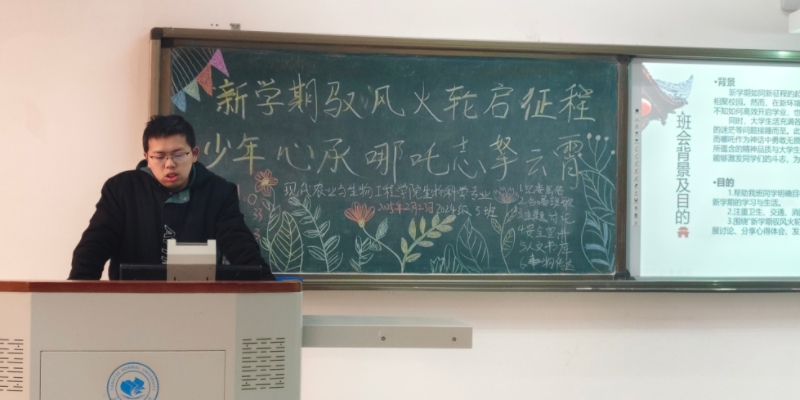 新学期驭风火轮启征程
少年心承哪吒志擎云霄
现代农业与生物工程学院生物科学专业
2025年2月21日 2024级3班
3.主题讨论
4.安全宣讲
班会背景及目的
•背景
新学期如同新征程的起
相聚校园。然而，在新环境
不知如何高效开启学业，也
同时，大学生活充满着
的迷茫等问题接踵而至。此
而哪吒作为神话中勇敢无畏
所蕴含的精神品质与大学生
能够激发同学们的斗志，为
•目的
1.帮助我班同学明确目
新学期的学习与生活。
2.注重卫生、交通、消
3.围绕“新学期驭风火轮
展讨论、分享心得体会、发